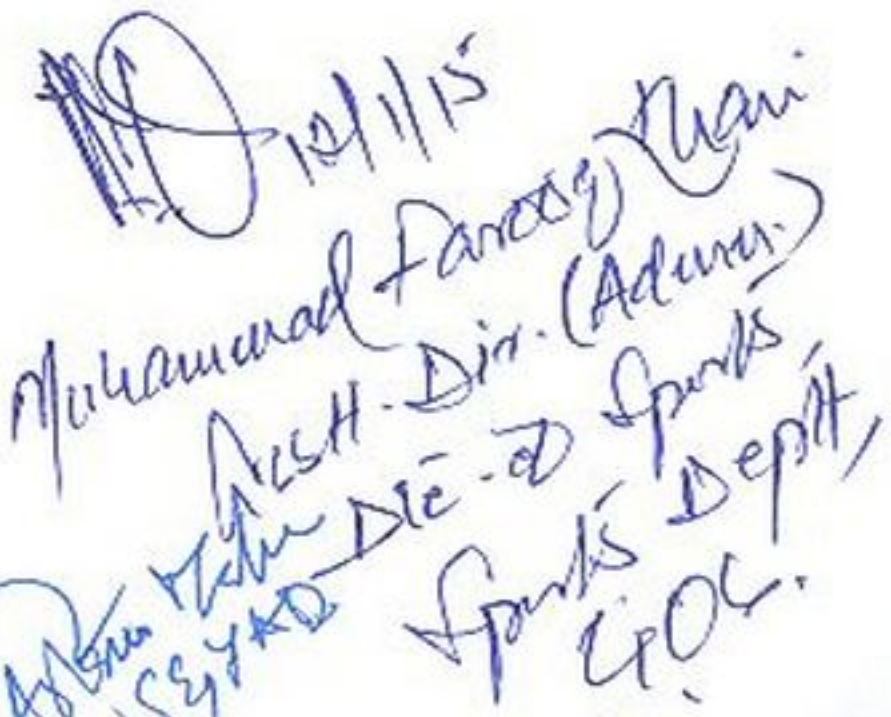 12/1/15
Muhammad Farooq Khan
Asstt. Dir. (Admn.)
Dte. of Sports,
Sports Deptt,
GOS.
SE&YAD